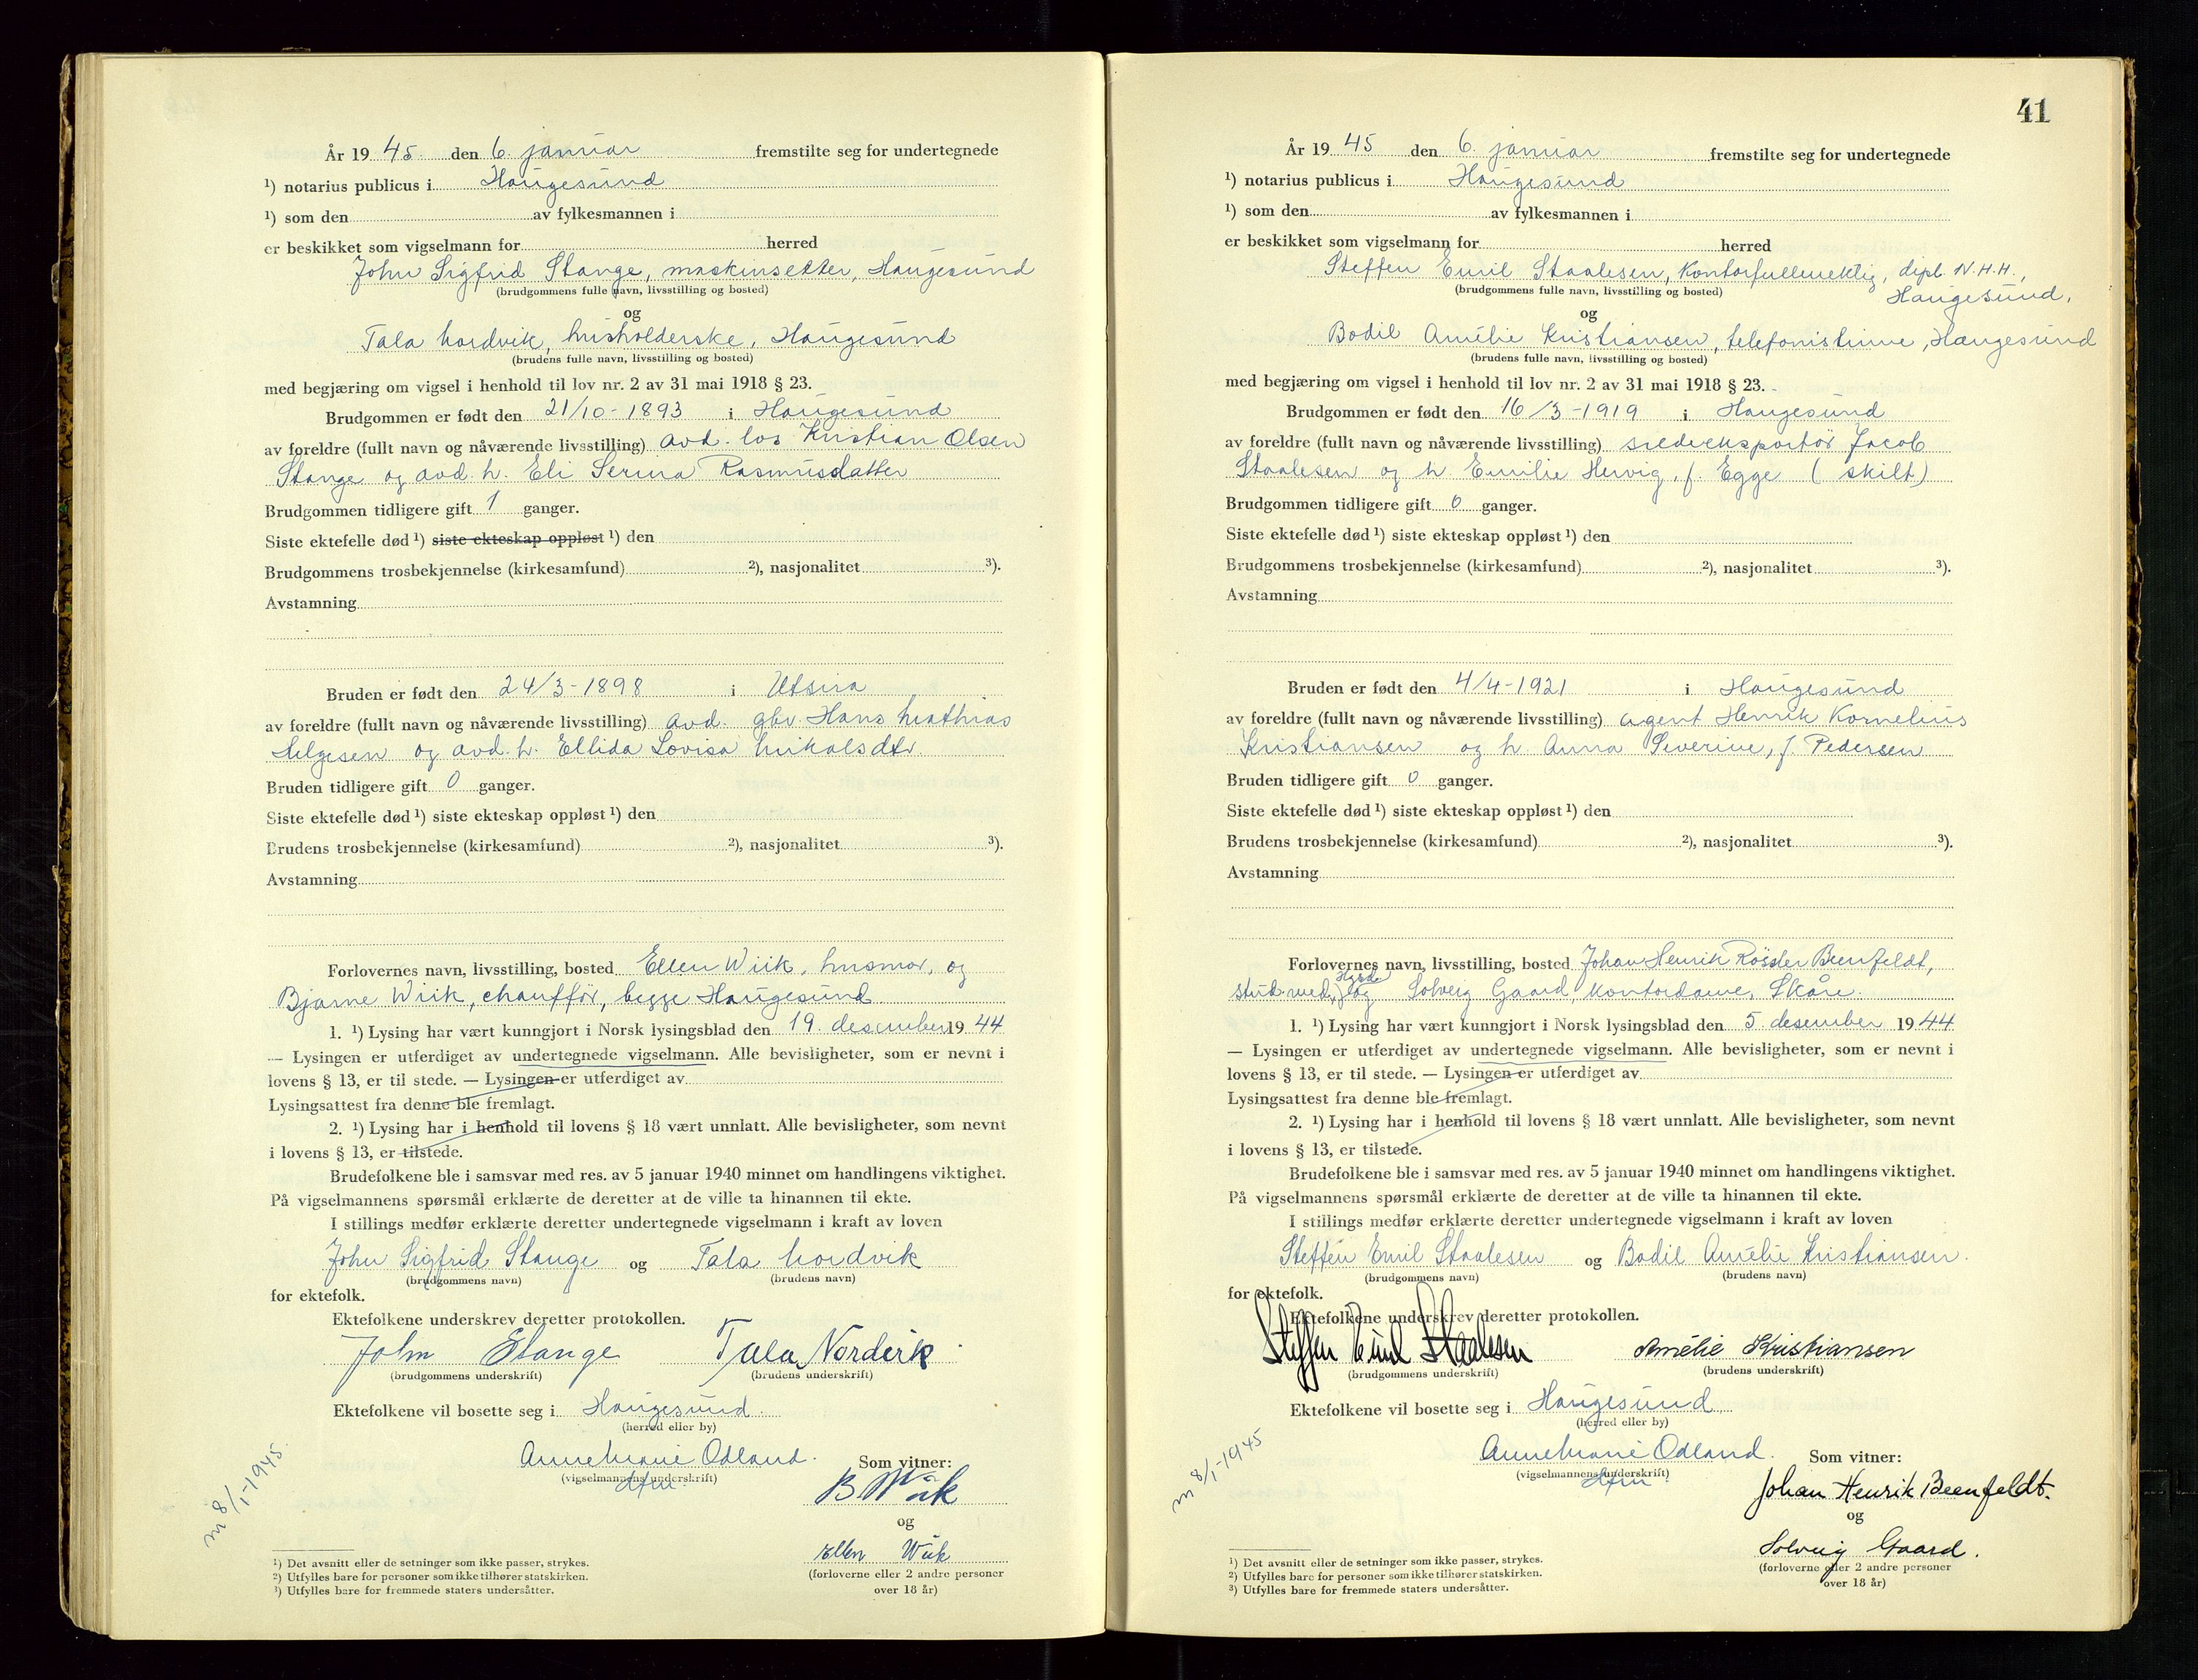 År 19 45. den 6. januar fremstilte seg for undertegnede
¹) notarius publicus i Haugesund
¹) som den av fylkesmannen i
er beskikket som vigselmann for herred
John Sigfrid Stange, maskinsetter, Haugesund
(brudgommens fulle navn, livsstilling og bosted)
og
Tala Nordvik, husholderske, Haugesund
(brudens fulle navn, livsstilling og bosted)
med begjæring om vigsel i henhold til lov nr. 2 av 31 mai 1918 § 23.
Brudgommen er født den 21/10-1893 i Haugesund
av foreldre (fullt navn og nåværende livsstilling) avd. los Kristian Olsen
Stange og avd. h. Eli Serina Rasmusdatter
Brudgommen tidligere gift 1 ganger.
Siste ektefelle død ¹) siste ekteskap oppløst ¹) den
Brudgommens trosbekjennelse (kirkesamfund) ²), nasjonalitet ³).
Avstamning
Bruden er født den 24/3-1898 i Utsira
av foreldre (fullt navn og nåværende livsstilling) avd. gbr. Hans Mathias
Helgesen og avd. h. Ellida Lovisa Nikolsdtr.
Bruden tidligere gift 0 ganger.
Siste ektefelle død ¹) siste ekteskap oppløst ¹) den
Brudens trosbekjennelse (kirkesamfund) ²), nasjonalitet ³).
Avstamning
Forlovernes navn, livsstilling, bosted Ellen Wiik, husmor, og
Bjarne Wiik, chauffør, begge Haugesund
1. ¹) Lysing har vært kunngjort i Norsk lysingsblad den 19. desember 19 44
— Lysingen er utferdiget av undertegnede vigselmann. Alle bevisligheter, som er nevnt i
lovens § 13, er til stede. — Lysingen er utferdiget av
Lysingsattest fra denne ble fremlagt.
2. ¹) Lysing har i henhold til lovens § 18 vært unnlatt. Alle bevisligheter, som nevnt
i lovens § 13, er tilstede.
Brudefolkene ble i samsvar med res. av 5 januar 1940 minnet om handlingens viktighet.
På vigselmannens spørsmål erklærte de deretter at de ville ta hinannen til ekte.
I stillings medfør erklærte deretter undertegnede vigselmann i kraft av loven
John Sigfrid Stange og Tala Nordvik
(brudgommens navn) (brudens navn)
for ektefolk.
Ektefolkene underskrev deretter protokollen.
John Stange Tala Nordvik
(brudgommens underskrift) (brudens underskrift)
Ektefolkene vil bosette seg i Haugesund.
(herred eller by)
Anne Marie Odland. Som vitner:
(vigselmannens underskrift)
B Wiik
og
Ellen Wiik
(forloverne eller 2 andre personer
over 18 år)
m 8/1-1945
¹) Det avsnitt eller de setninger som ikke passer, strykes.
²) Utfylles bare for personer som ikke tilhører statskirken.
³) Utfylles bare for fremmede staters undersåtter.
41
År 19 45 den 6. januar fremstilte seg for undertegnede
¹) notarius publicus i Haugesund
¹) som den av fylkesmannen i
er beskikket som vigselmann for herred
Steffen Emil Staalesen, Kontorfullmektig, dipl. N.H.H.,
Haugesund,
(brudgommens fulle navn, livsstilling og bosted)
og
Bodil Amélie Kristiansen, telefonistinne, Haugesund
(brudens fulle navn, livsstilling og bosted)
med begjæring om vigsel i henhold til lov nr. 2 av 31 mai 1918 § 23.
Brudgommen er født den 16/3-1919 i Haugesund
av foreldre (fullt navn og nåværende livsstilling) sildeeksportør Jacob
Staalesen og h. Emilie Hervig, f. Egge (skilt)
Brudgommen tidligere gift 0 ganger.
Siste ektefelle død ¹) siste ekteskap oppløst ¹) den
Brudgommens trosbekjennelse (kirkesamfund) ²), nasjonalitet ³).
Avstamning
Bruden er født den 4/4-1921 i Haugesund
av foreldre (fullt navn og nåværende livsstilling) agent Henrik Kornelius
Kristiansen og h. Anna Severine, f. Pedersen
Bruden tidligere gift 0 ganger.
Siste ektefelle død ¹) siste ekteskap oppløst ¹) den
Brudens trosbekjennelse (kirkesamfund) ²), nasjonalitet ³).
Avstamning
Forlovernes navn, livsstilling, bosted Johan Henrik Rössler Beenfeldt,
stud. med., og Solveig Gaard, kontordame, Skåre.
1. ¹) Lysing har vært kunngjort i Norsk lysingsblad den 5. desember 19 44
— Lysingen er utferdiget av undertegnede vigselmann. Alle bevisligheter, som er nevnt i
lovens § 13, er til stede. — Lysingen er utferdiget av
Lysingsattest fra denne ble fremlagt.
2. ¹) Lysing har i henhold til lovens § 18 vært unnlatt. Alle bevisligheter, som nevnt
i lovens § 13, er tilstede.
Brudefolkene ble i samsvar med res. av 5 januar 1940 minnet om handlingens viktighet.
På vigselmannens spørsmål erklærte de deretter at de ville ta hinannen til ekte.
I stillings medfør erklærte deretter undertegnede vigselmann i kraft av loven
Steffen Emil Staalesen og Bodil Amélie Kristiansen.
(brudgommens navn) (brudens navn)
for ektefolk.
Ektefolkene underskrev deretter protokollen.
Steffen Emil Staalesen Amélie Kristiansen
(brudgommens underskrift) (brudens underskrift)
Ektefolkene vil bosette seg i Haugesund.
(herred eller by)
Anne Marie Odland. Som vitner:
(vigselmannens underskrift)
Johan Henrik Beenfeldt.
og
Solveig Gaard.
(forloverne eller 2 andre personer
over 18 år)
m 8/1-1945
¹) Det avsnitt eller de setninger som ikke passer, strykes.
²) Utfylles bare for personer som ikke tilhører statskirken.
³) Utfylles bare for fremmede staters undersåtter.